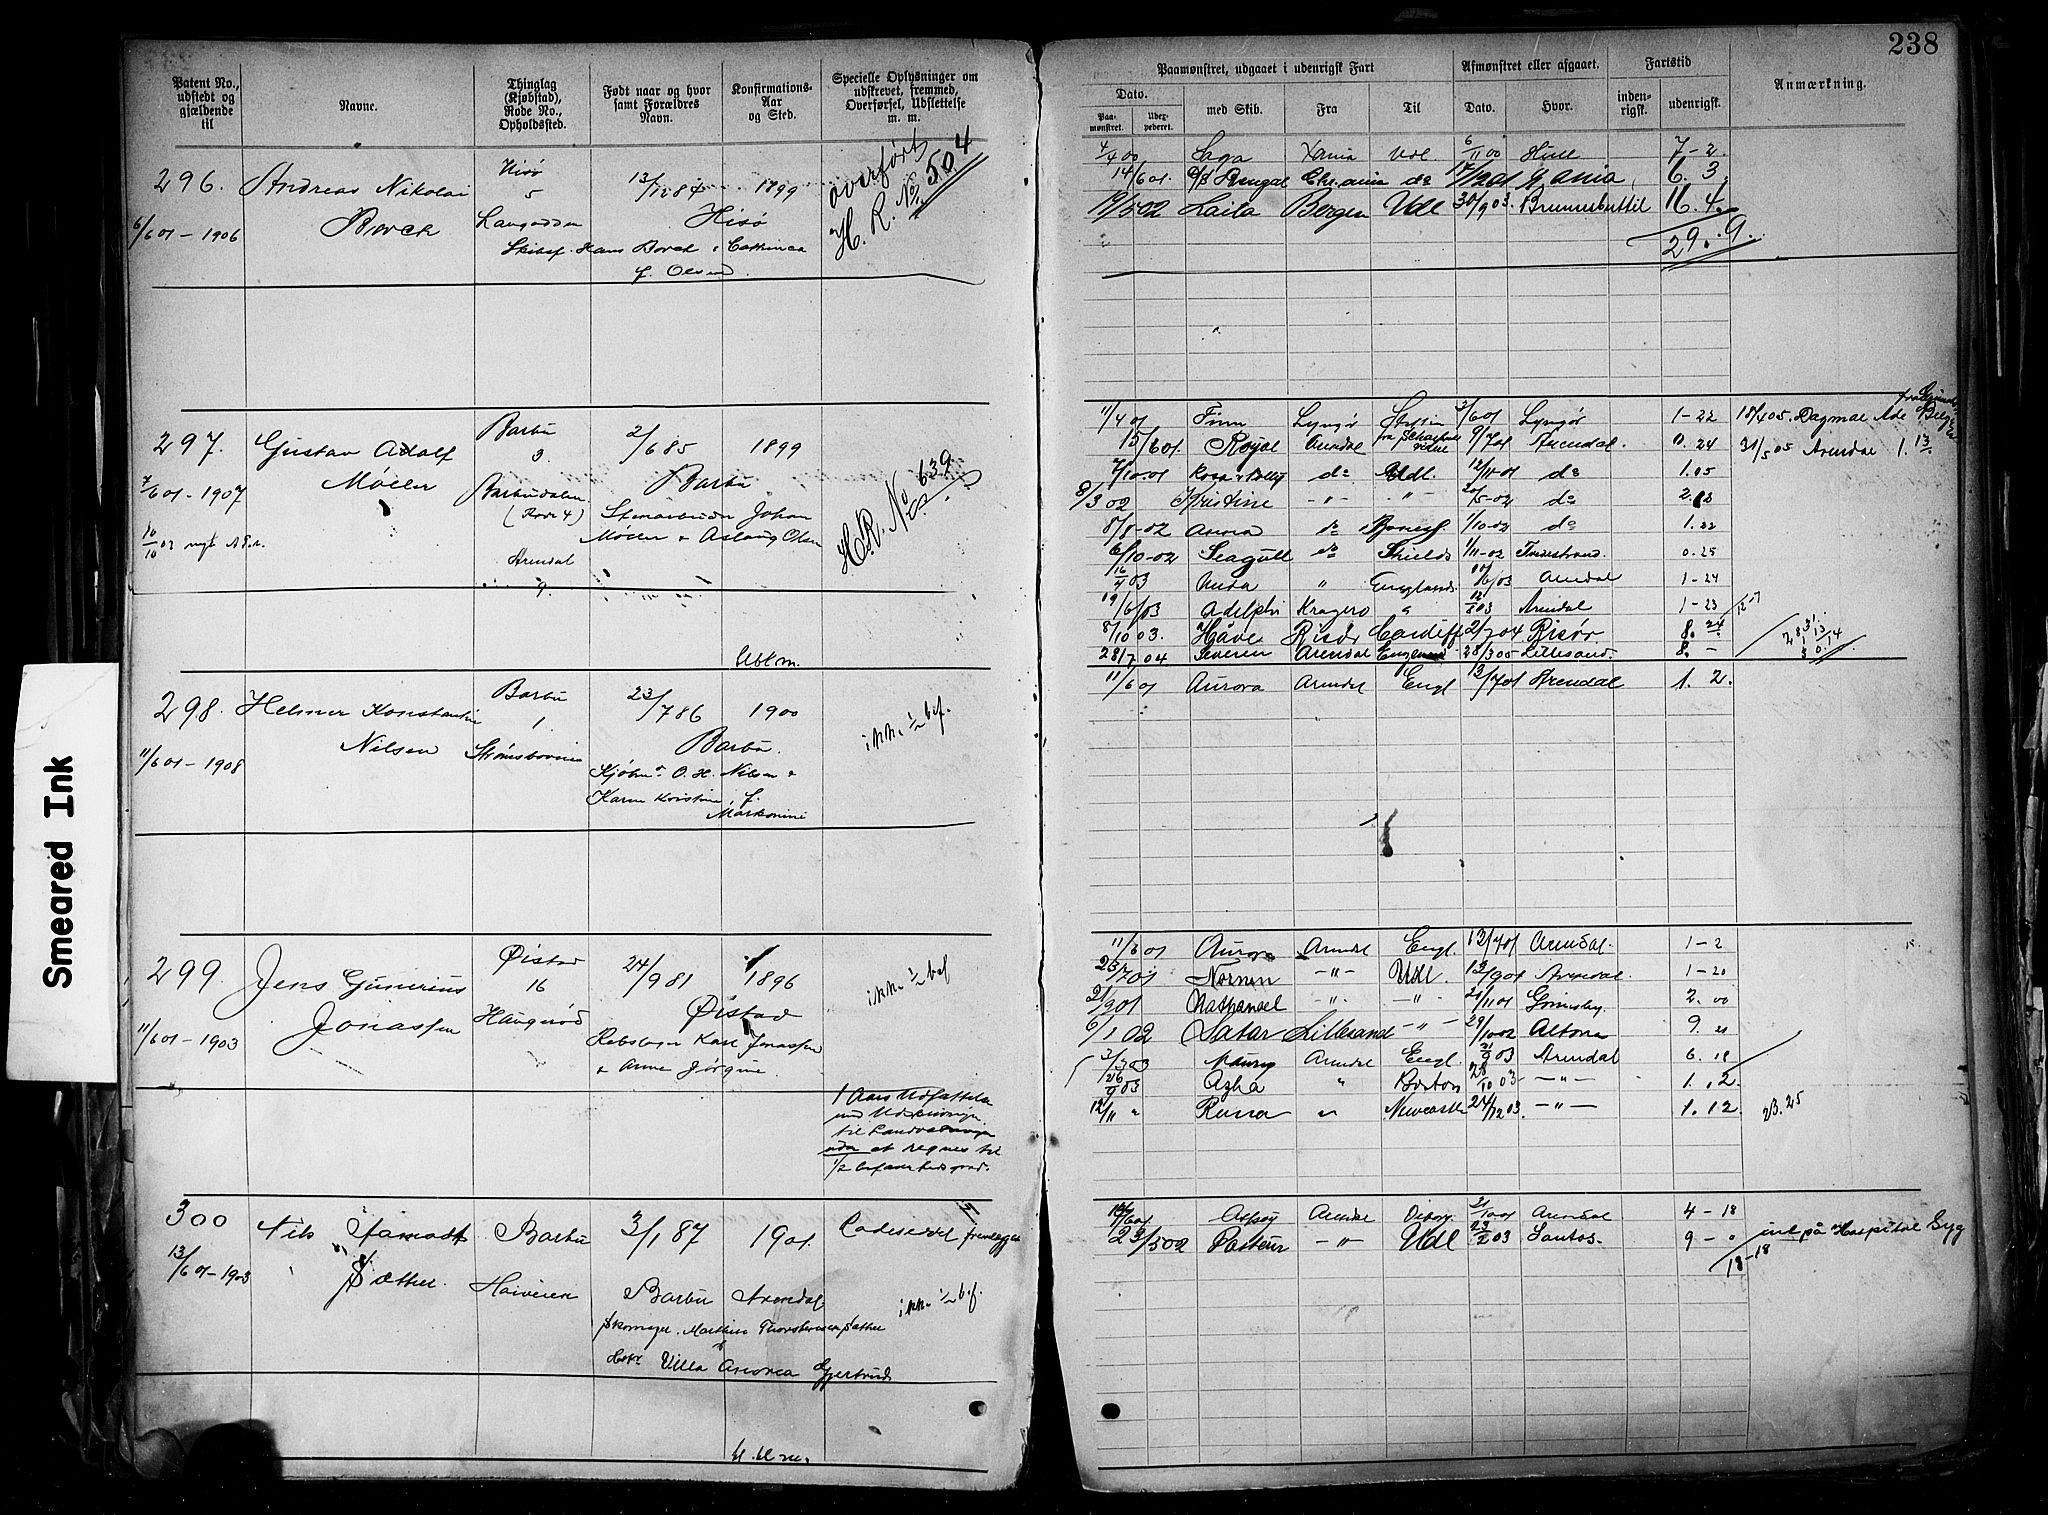 238
Patent No., udstedt og gjældende til
Navne.
Thinglag (Kjøbstad), Rode No., Opholdsted.
Født naar og hvor samt Forældres Navn.
Konfirmations-Aar og Sted.
Specielle Oplysninger om udskrevet, fremmed, Overførsel, Udslettelse m. m.
Paamønstret, udgaaet i udenrigsk Fart
Afmønstret eller afgaaet.
Fartstid
Anmærkning.
Dato.
med Skib.
Fra
Til
Dato.
Hvor.
inden-rigsk.
udenrigsk.
Paa-mønstret.
Udex-pederet.
296. Andreas Nikolai Hisø 5 13/12 84 1899 overført
6/6 01 - 1906 Borch Langodden Hisø H. R. No 504
Skibsf. Hans Borch & Cathinca
f. Olsen
4/4 00 Saga Xania Udl. 6/11 00 Hull 7-2.
14/6 01. Bengal Chr.ania do 17/12 01 Xania 6. 3.
19/5 02 Laila Bergen Udl 30/9 03. Brunsbuttel 16. 4.
29. 9.
297. Gustav Adolf Barbu 3. 2/6 85 1899
7/6 01 - 1907 Møller Barbudalen Barbu H.R. No 639
(Rode 4) Stenarbeider Johan
Møller & Aslaug Olsen
10/10 02 nyt
Arendal
9.
11/4 01 Finn Lyngør Stettin 3/6 01 Lyngør 1-22 18/4 05. Dagmar
15/6 01. Royal Arendal 9/7 01 Arendal. 0. 24 31/5 05 Arendal 1. 13
7/10. 01 Rosa & Polly do Udl. 12/11 01 do 1. 05
8/3 02 Kristine -"- -"- 20/5-02 do
8/8-02 Aurora do 1/10-02 do 1. 22
6/10-02 Seagull do Shields 1/11-02 Tvedestrand. 0. 25
16/4 03 Unda " England 10/6 03 Arendal 1-24
19/6 03 Adelphi Kragerø " 12/8 03 Arendal 1-23
8/10 03. Håve Risør Cardiff 2/7 04 Risør 8. 24
28/7 04 Severen Arendal England 28/3 05 Lillesand. 8. -
Ubkm.
298. Helmer Konstantin Barbu 1 23/7 86 1900 ikke ½ bef.
11/6 01 - 1908 Nilsen Strømsbovien Barbu.
Kjøbm. O. H. Nilsen &
Karen Kristine, f.
Markonini
11/6 01 Aurora Arendal Engl 13/7 01 Arendal 1. 2.
299. Jens Gunerius Øistad 16 24/9 81 1896 ikke ½ bef
11/6 01 - 1903 Jonassen Haugerød Øistad
Rebslager Karl Jonassen
& Anne Jørgine
1 Aars Udsættelse
med Udskrivning
til Landværnet
uden at regnes til
½ befarenhedsgrad.
11/6 01 Aurora Arendal Engl. 13/7 01 Arendal. 1-2
23/7 01 Nornen -"- Udl. 13/9 01 Arendal. 1-20
21/9 01 Nathanael -"- -"- 21/11 01 Grimsby. 2. 00
6/1 02 Satar Lillesand -"- 29/10 02 Altona 9. 21
3/3 03 Arendal Engl. 21/9 03 Arendal 6. 18
26/9 03 Azha " Boston 28/10 03 -"- 1. 2.
12/11 " Russa " Newcastle 24/12 03. -"- 1. 12. 23. 25
300 Nils Barbu 3/1 87 1901. Lodseddel fremlagt
13/6 01-1903 Sæther. Høiveien Barbu Arendal ikke ½ bef.
Skomager. Mathias Thorstensen Sæther
Villa Andrea Gjertrud
Arendal 2/10 01 Arendal 4-18
23/5 02 Pasteur -"- Udl 23/2 03 Santos. 9 - 0 ind på Hospital Syg
13-18
U. bl m.
Smeared Ink